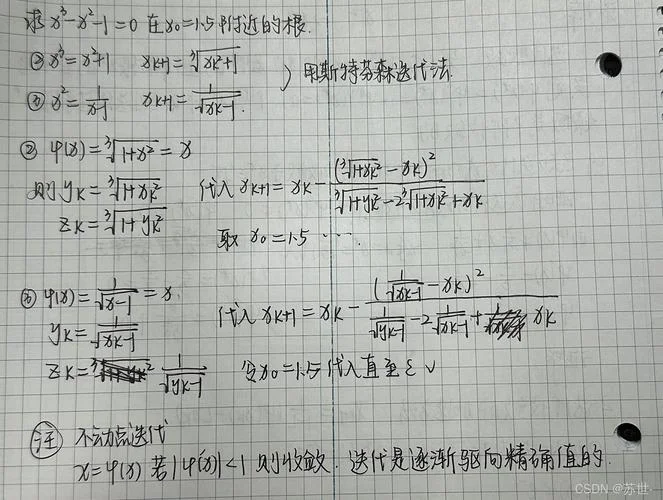 求x³-x²-1=0 在x₀=1.5附近的根.
② x³=x²+1 xₖ₊₁=∛(xₖ²+1)
③ x²=1/(x-1) xₖ₊₁=1/√(xₖ-1).
) 用斯特芬森迭代法.
② φ(x)=∛(1+x²)=x
则yₖ=∛(1+xₖ²) 代入xₖ₊₁=xₖ-(∛(1+xₖ²)-xₖ)²/(∛(1+yₖ²)-2∛(1+xₖ²)+xₖ)
zₖ=∛(1+yₖ²)
取 x₀=1.5 ....
③ φ(x)=1/√(x-1)=x.
yₖ=1/√(xₖ-1) 代入xₖ₊₁=xₖ-(1/√(xₖ-1)-xₖ)²/(1/√(yₖ-1)-2 1/√(xₖ-1)+xₖ)
zₖ=1/√(yₖ-1) 令x₀=1.5代入直至ε√
注 不动点迭代
x=φ(x) 若|φ(x)|<1 则收敛. 迭代是逐渐驱向精确值的.
CSDN @苏世